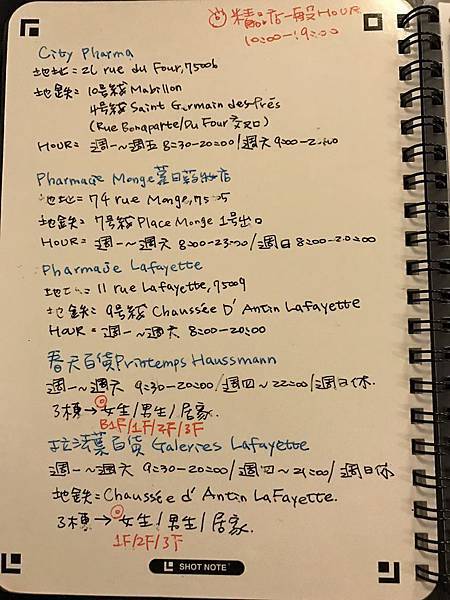 精品店一般HOUR
10:00-19:00
City Pharma
地址=26 rue du Four, 75006
地鉄=10号線Mabillon
4号線Saint Germain des Prés
(Rue Bonaparte/Du Four 交叉口)
HOUR= 週一~週五 8:30-20:00/週六 9:00-20:00
Pharmacie Monge蒙日藥妝店
地址=74 rue Monge, 75005
地鉄=7号線Place Monge 1号出口
HOUR=週一~週六 8:00-23:00/週日 8:00-20:00
Pharmacie Lafayette
地址=11 rue Lafayette, 75009
地鉄=9号線 Chaussée D'Antin Lafayette
HOUR=週一~週六 8:00-20:00
春天百貨Printemps Haussmann
週一~週六 9:30-20:00/週四~22:00/週日休.
3棟→女生/男生/居家.
B1F/1F/2F/3F
拉法葉百貨 Galeries Lafayette
週一~週六 9:30-20:00/週四~21:00/週日休
地鉄=Chaussée d'Antin LaFayette.
3棟→女生/男生/居家.
1F/2F/3F
SHOT NOTE